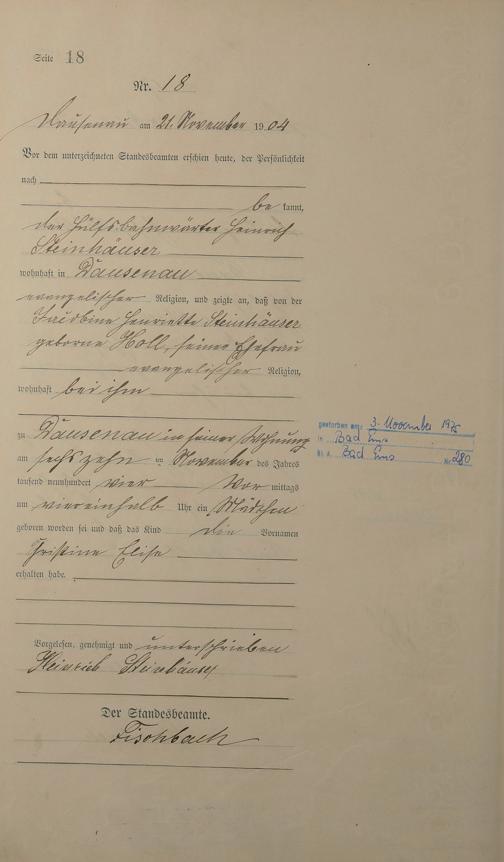 Seite 18
Nr. 18
Dausenau am 21. November 1904
Vor dem unterzeichneten Standesbeamten erschien heute, der Persönlichkeit
nach
be kannt,
der Hülfsbahnwärter Heinrich
Steinhäuser
wohnhaft in Dausenau
evangelischer Religion, und zeigte an, daß von der
Henriette Steinhäuser
geborne Holl, seiner Ehefrau
evangelischer Religion,
wohnhaft bei ihm
zu Dausenau in seiner Wohnung
am sechszehn ten November des Jahres
tausend neunhundert vier Vor mittags
um viereinhalb Uhr ein Mädchen
geboren worden sei und daß das Kind die Vornamen
Christine Elise
erhalten habe.
Vorgelesen, genehmigt und unterschrieben
Heinrich Steinhäuser
Der Standesbeamte.
Fischbach
gestorben am: 3. November 1975
in Bad Ems
St. A. Bad Ems Nr. 280